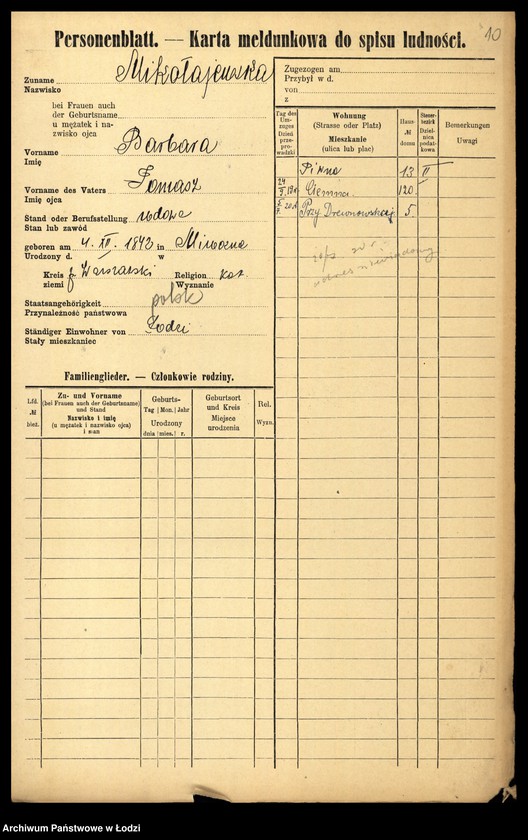 10
Personenblatt. — Karta meldunkowa do spisu ludności.
Zuname Mikołajewska
Nazwisko
bei Frauen auch
der Geburtsname
u mężatek i na-
zwisko ojca
Vorname Barbara
Imię
Vorname des Vaters Tomasz
Imię ojca
Stand oder Berufsstellung wdowa
Stan lub zawód
geboren am 4. XII. 1842 in
Urodzony d. w
Kreis Warszawski Religion kat.
ziemi Wyznanie
Staatsangehörigkeit polsk
Przynależność państwowa
Ständiger Einwohner von Łodzi
Stały mieszkaniec
Familienglieder. — Członkowie rodziny.
Lfd. № bież.
Zu- und Vorname
(bei Frauen auch der Geburtsname)
und Stand
Nazwisko i imię
(u mężatek i nazwisko ojca)
i stan
Geburts-
Tag | Mon. | Jahr
Urodzony
dnia | mies. | r.
Geburtsort
und Kreis
Miejsce
urodzenia
Rel.
Wyzn.
Zugezogen am
Przybył w d.
von
z
Tag des
Um-
zuges
Dzień
prze-
prowa-
dzki
Wohnung
(Strasse oder Platz)
Mieszkanie
(ulica lub plac)
Haus-
№
domu
Steuer-
bezirk
Dziel-
nica
podat-
kowa
Bemerkungen
Uwagi
Piwna 13 II
Ciemna 120
Przy Drewnowskiej 5.
Archiwum Państwowe w Łodzi